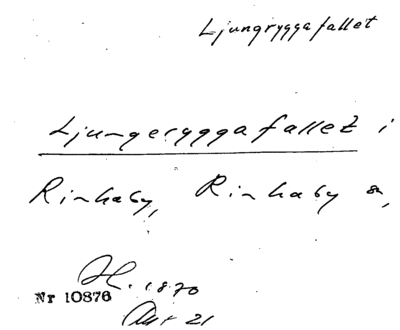 Ljungryggafallet
Ljungeryggafallet i
Rinkaby, Rinkaby sn,
H. 1870
Nr 10876
Akt 21